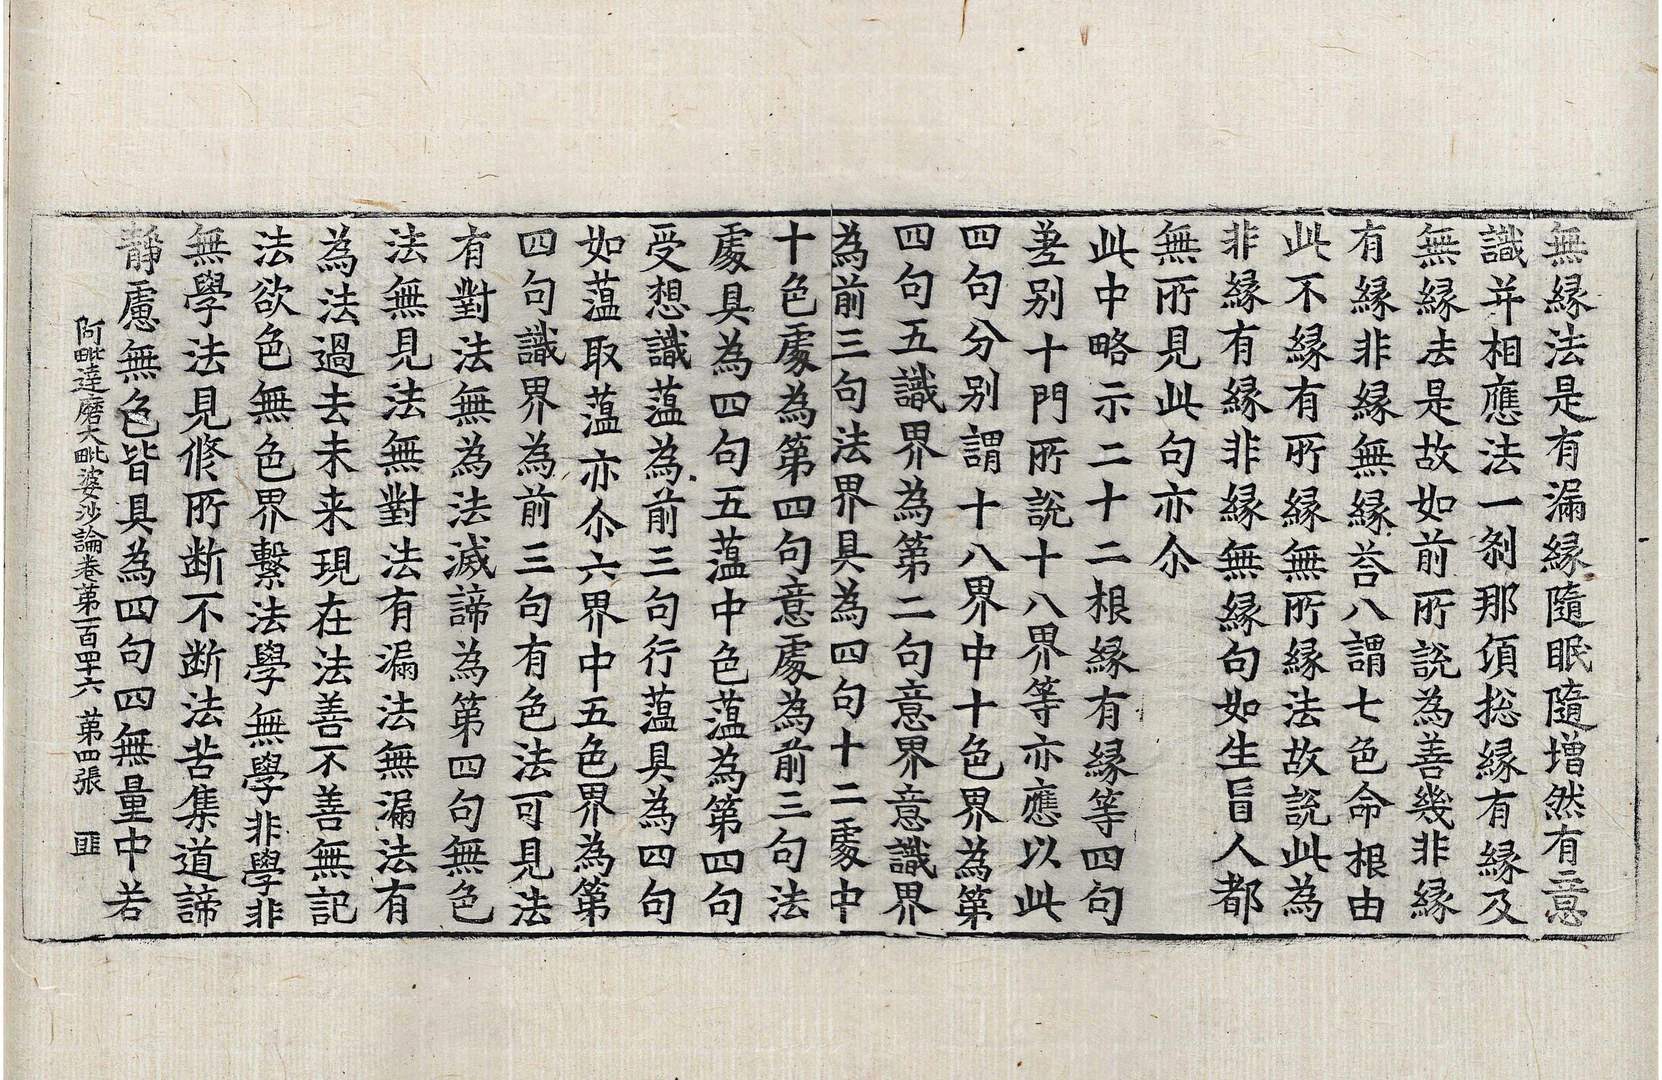 無緣法是有漏緣隨眠隨增然有意
識并相應法一剎那傾捴緣有緣及
無緣法是故如前所說為善幾非緣
有緣非緣無緣荅八謂七色命根由
此不緣有所緣無所緣法故說此為
非緣有緣非緣無緣句如生盲人都
無所見此句亦尒
此中略示二十二根緣有緣等四句
差別十門所說十八界等亦應以此
四句分別謂十八界中十色界為第
四句五識界為第二句意界意識界
為前三句法界具為四句十二處中
十色處為第四句意處為前三句法
處具為四句五蕰中色蕰為第四句
受想識蕰為前三句行蕰具為四句
如蕰取蕰亦尒六界中五色界為第
四句識界為前三句有色法可見法
有對法無為法滅諦為第四句無色
法無見法無對法有漏法無漏法有
為法過去未来現在法善不善無記
法欲色無色界繫法學無學非學非
無學法見修所斷不斷法苦集道諦
靜慮無色皆具為四句四無量中若
阿毗達磨大毗婆沙論卷第一百四十六 第四張 匪